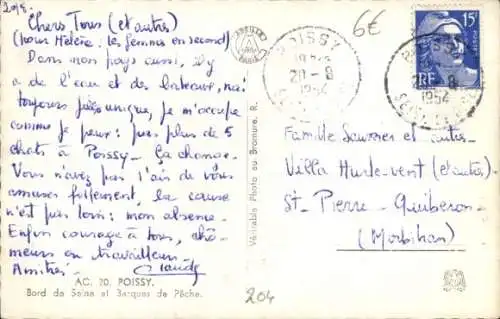 20/8.
Chers Tous (et autres)
(pour Hélène: les femmes en second)
Dans mon pays aussi, il y
a de l'eau et des bateaux, mais
toujours pas unique, je m'occupe
comme je peux: pas plus de 5
chats à Poissy. Ça change.
Vous n'avez pas l'air de vous
amuser follement, la cause
n'est pas loin: mon absence.
Enfin courage à tous, chô-
meurs en travailleurs.
Amitiés.
Claude
AC. 20. POISSY.
Bord de Seine et Barques de Pêche.
Véritable Photo au Bromure. R.
6€
POISSY
20-8
1954
15F
RF
20-8
1954
Famille et autres
Villa Hurle-vent (et autres)
St-Pierre-Quiberon
(Morbihan)
204